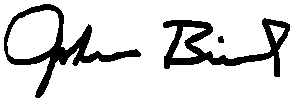 John Bird